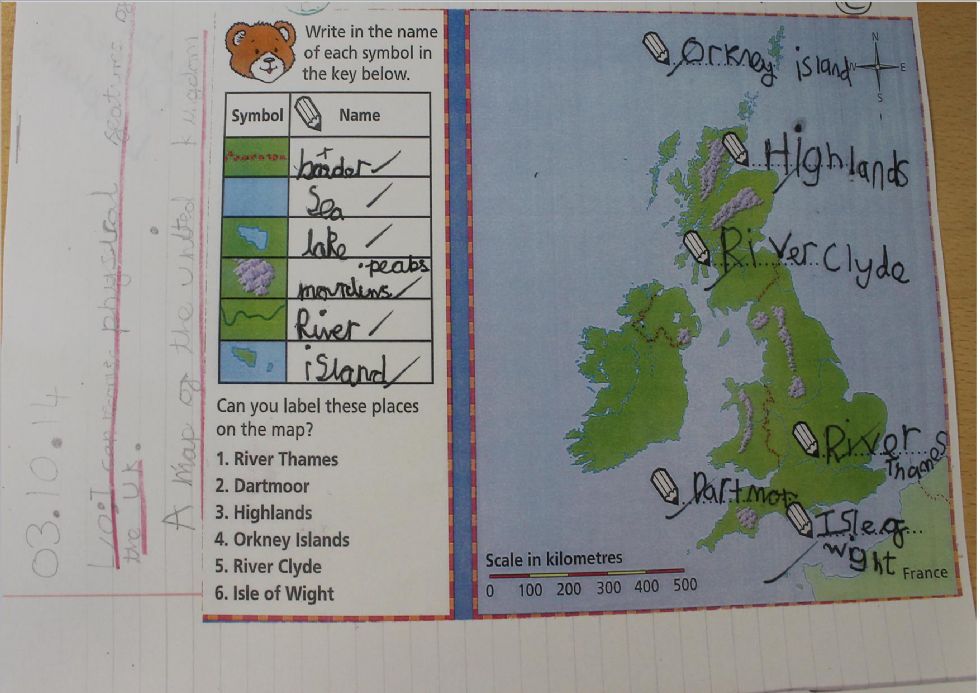 03.10.14
L.O: I can name physical features of
the UK.
A map of the united kingdom
Write in the name
of each symbol in
the key below.
Symbol Name
border
Sea
lake
peaks
mountens
River
iSland
Can you label these places
on the map?
1. River Thames
2. Dartmoor
3. Highlands
4. Orkney Islands
5. River Clyde
6. Isle of Wight
Orkney island
N
W E
S
Highlands
River Clyde
River
Thames
Dartmor
Isle of
wight
France
Scale in kilometres
0 100 200 300 400 500